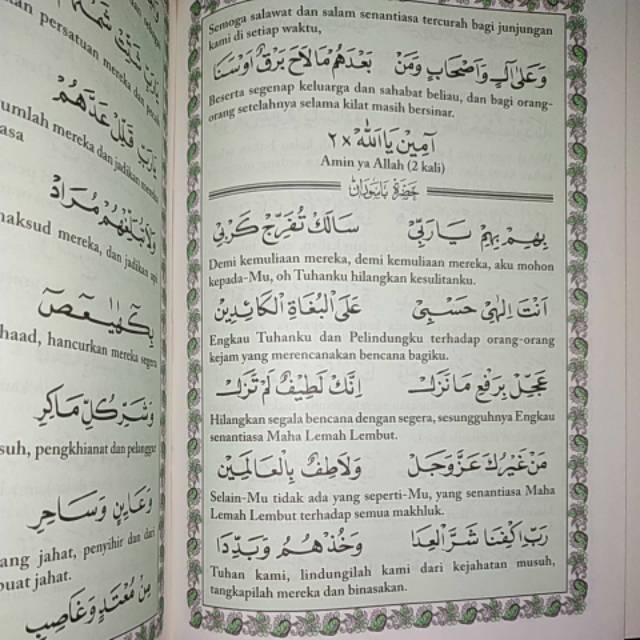 جَهَاتٍ
kan persatuan mereka dan
يَارَبِّ قَلِّلْ عَدَّهُمْ
umlah mereka dan jadikan
asa
وَلَاتُبَلِّغْهُمْ مُرَادْ
naksud mereka, dan jadikan
بِكٓهٰيٰعٓصٓ
haad, hancurkan mereka segera
وَشَرِّ كُلِّ مَاكِرِ
suh, pengkhianat dan pelanggar
وَعَايِنٍ وَسَاحِرِ
ang jahat, penyihir dan dari
buat jahat.
مِنْ مُعْتَدٍ وَغَاصِبِ
Semoga salawat dan salam senantiasa tercurah bagi junjungan
kami di setiap waktu,
وَعَلَىٰ آلٍ وَاَصْحَابٍ وَمَنْ بَعْدَهُمْ مَالَاحَ بَرْقٌ اَوْسَنَا
Beserta segenap keluarga dan sahabat beliau, dan bagi orang-
orang setelahnya selama kilat masih bersinar.
آمِيْنْ يَااَللّٰهْ ×٢
Amin ya Allah (2 kali)
بِهِمْ بِهِمْ يَارَبِّيْ سَالَكْ تُفَرِّجْ كَرْبِيْ
Demi kemuliaan mereka, demi kemuliaan mereka, aku mohon
kepada-Mu, oh Tuhanku hilangkan kesulitanku.
اَنْتَ اِلٰهِيْ حَسْبِيْ عَلَى الْبُغَاةِ الْكَائِدِيْنْ
Engkau Tuhanku dan Pelindungku terhadap orang-orang
kejam yang merencanakan bencana bagiku.
عَجِّلْ بِرَفْعِ مَا نَزَلْ اِنَّكْ لَطِيْفٌ لَمْ تَزَلْ
Hilangkan segala bencana dengan segera, sesungguhnya Engkau
senantiasa Maha Lemah Lembut.
مَنْ غَيْرُكَ عَزَّ وَجَلْ وَلَاطِفٌ بِالْعَالَمِيْنْ
Selain-Mu tidak ada yang seperti-Mu, yang senantiasa Maha
Lemah Lembut terhadap semua makhluk.
رَبِّ اكْفِنَا شَرَّ الْعِدَا وَخُذْهُمُ وَبَدِّدَا
Tuhan kami, lindungilah kami dari kejahatan musuh,
tangkapilah mereka dan binasakan.